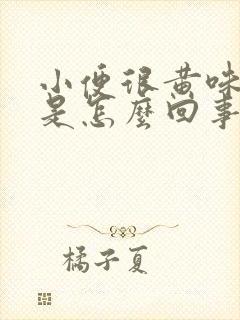 小便很黄味
是怎麼回事
橘子夏